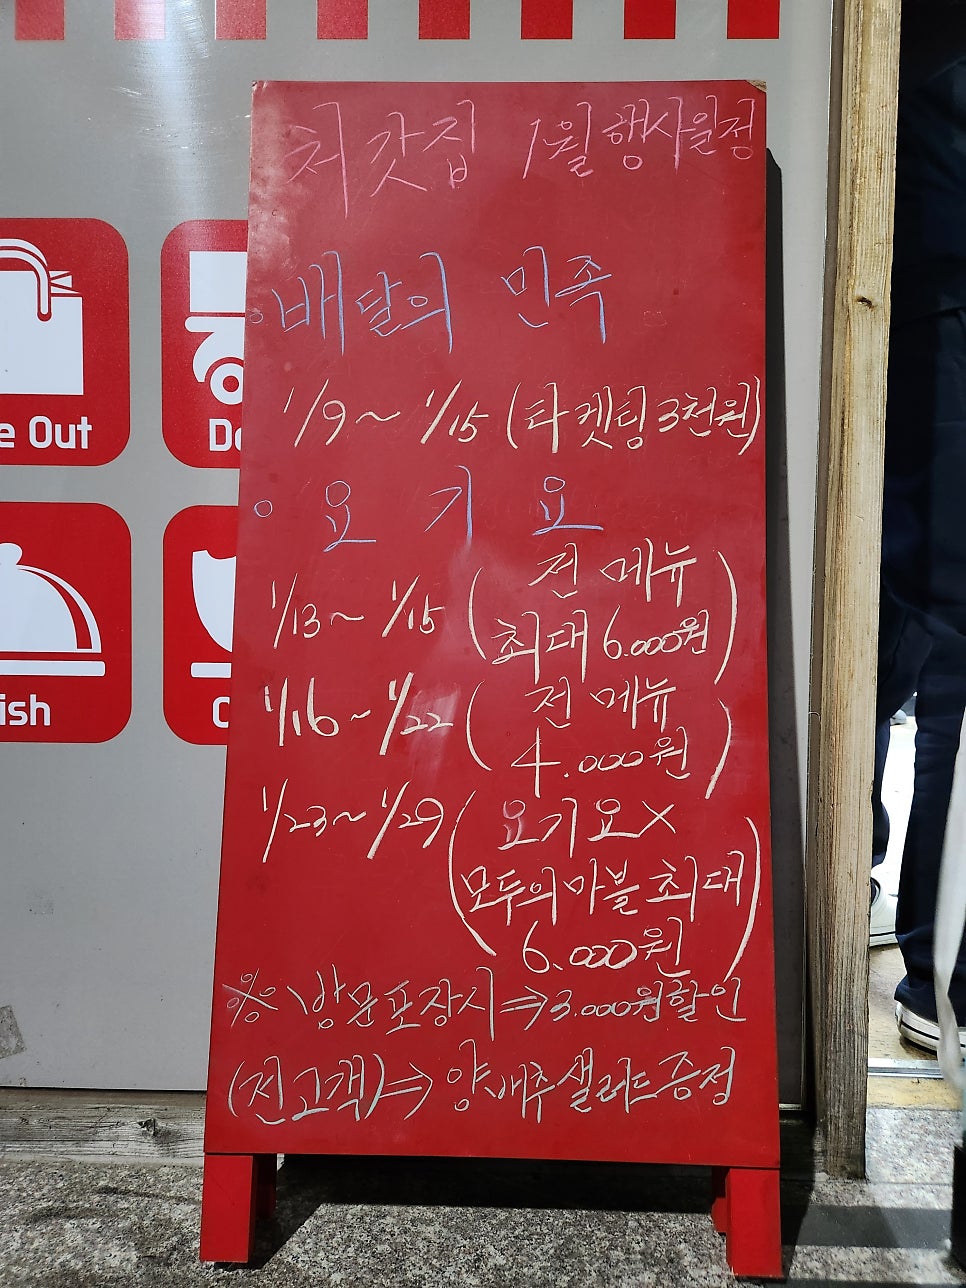 처갓집 1월행사일정
배달의 민족
1/9 ~ 1/15 (타켓팅 3천원)
요기요
1/13 ~ 1/15 (전 메뉴
최대 6.000원)
1/16 ~ 1/22 (전 메뉴
4.000원)
1/23 ~ 1/29 (요기요X
모두의마블 최대
6.000원)
※ 방문포장시 ⇒ 3.000원할인
(전고객) ⇒ 양배추샐러드증정
e Out
De
ish
C